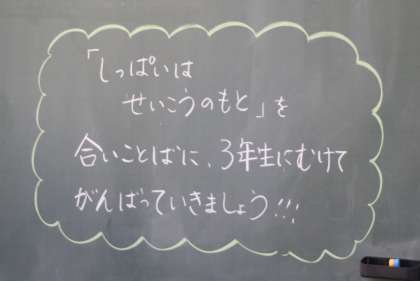 「しっぱいは
せいこうのもと」を
合いことばに、3年生にむけて
がんばっていきましょう!!!